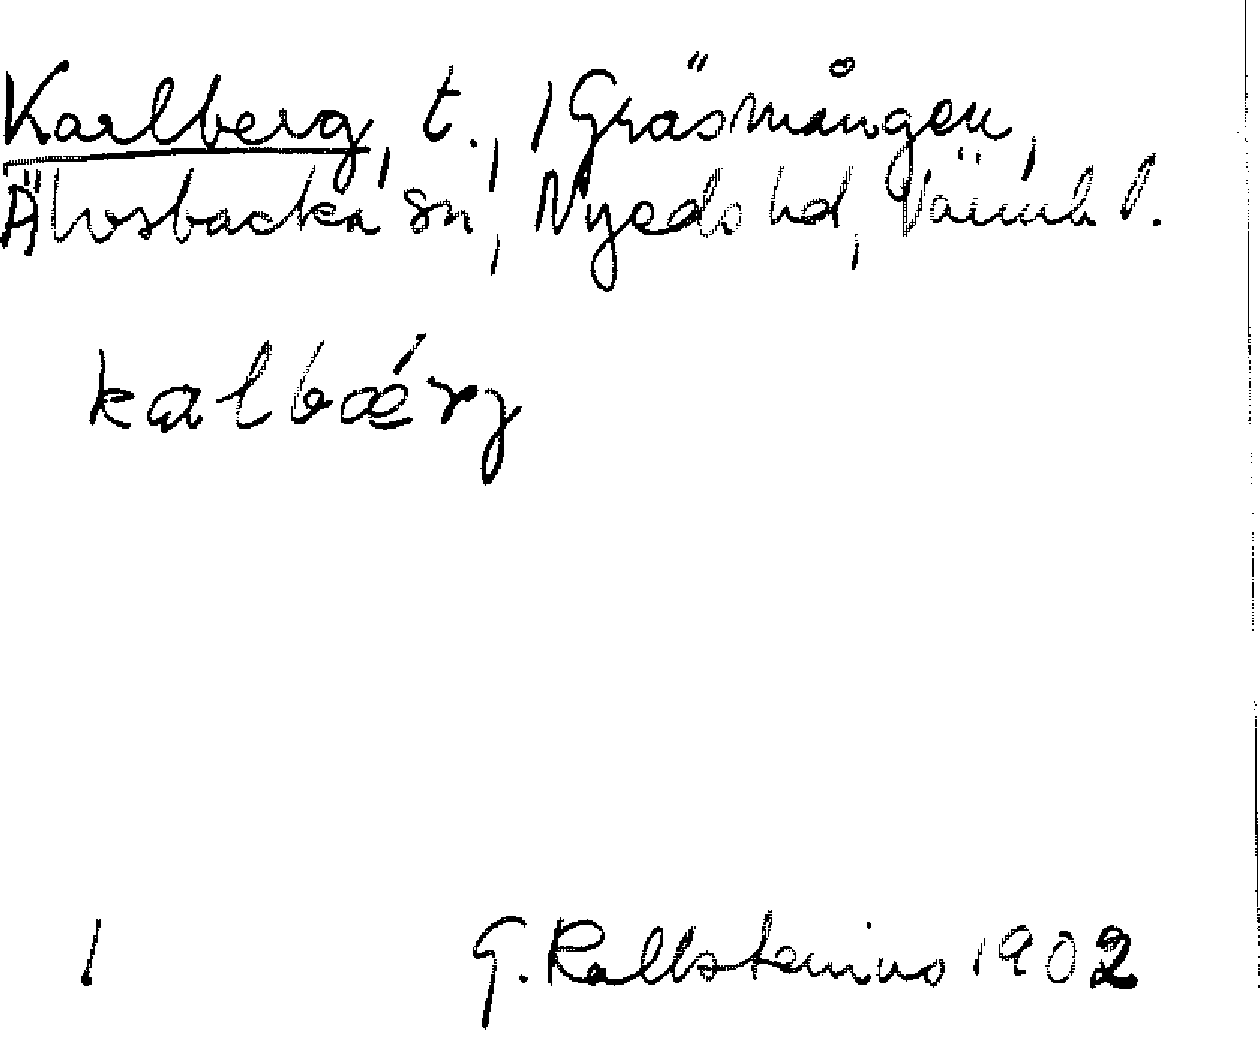 Karlberg, t., 1 Gräsmången,
Älvsbacka sn, Nyeds hd, Värml. l.
kalbǽrj
1 G. Kallstenius 1902